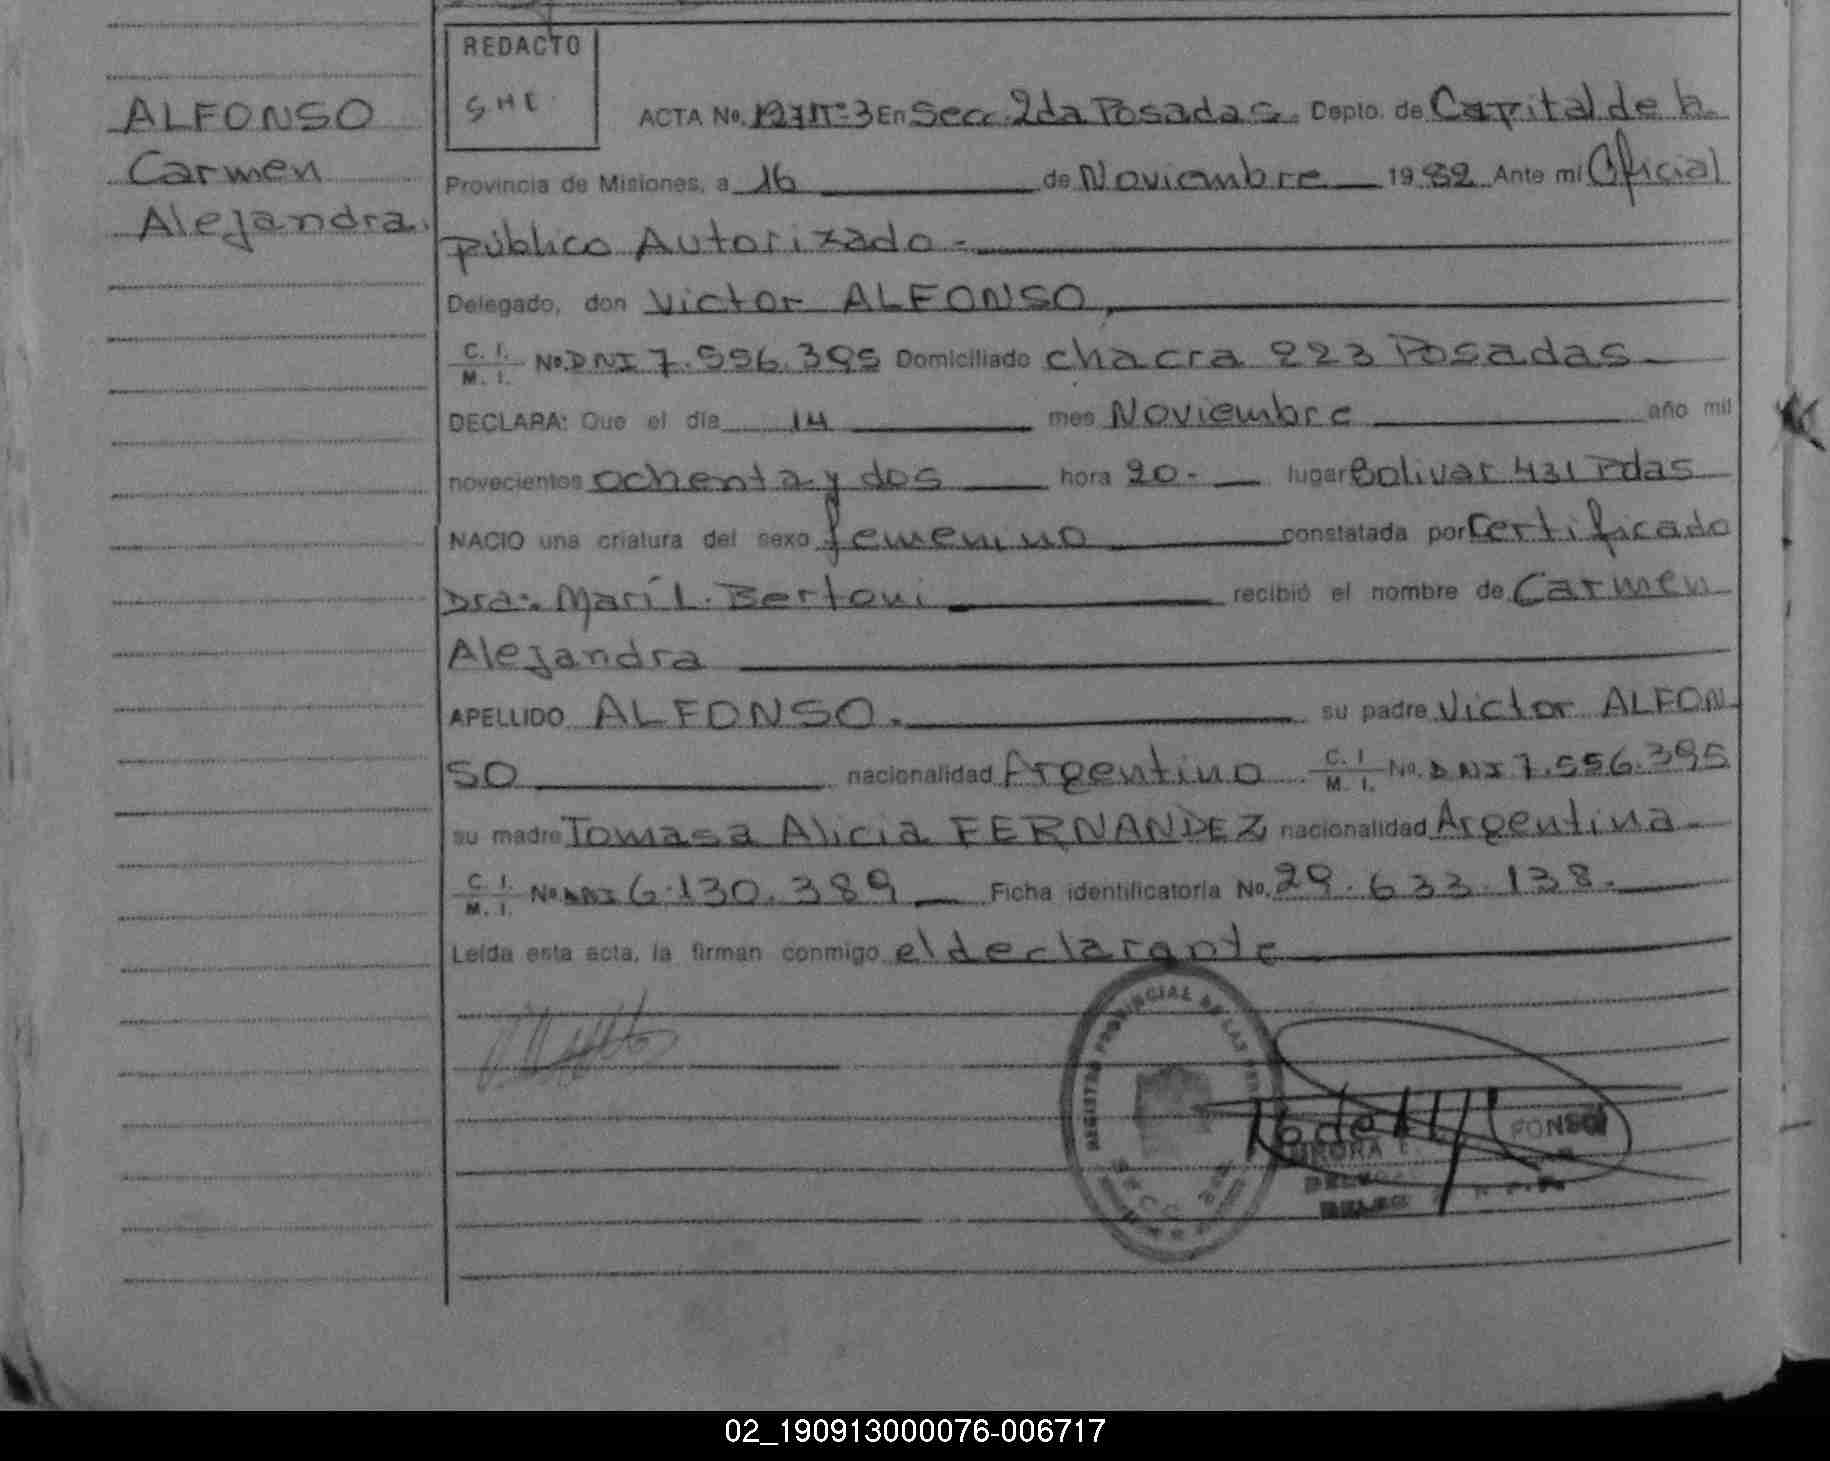 ALFONSO
Carmen
Alejandra
REDACTO
ACTA No. 127 Tº 3 En Secc. 2da Posadas. Depto. de Capital de la
Provincia de Misiones, a 16 de Noviembre 1982 Ante mi Oficial
Público Autorizado -
Delegado, don Victor ALFONSO,
C. I. / M. I. No. DNI 7.556.395 Domiciliado chacra 223 Posadas
DECLARA: Que el día 14 mes Noviembre año mil
novecientos ochenta y dos hora 20 - lugar Bolivar 431 Pdas
NACIO una criatura del sexo femenino constatada por Certificado
Dra: Marí L. Bertoni recibió el nombre de Carmen
Alejandra
APELLIDO ALFONSO. su padre Victor ALFON
SO nacionalidad Argentino C. I. / M. I. No. DNI 7.556.395
su madre Tomasa Alicia FERNANDEZ nacionalidad Argentina -
C. I. / M. I. No. DNI 6.130.389 Ficha identificatoria No. 29.633.138.
Leída esta acta, la firman conmigo el declarante
REGISTRO PROVINCIAL DE LAS
02_190913000076-006717